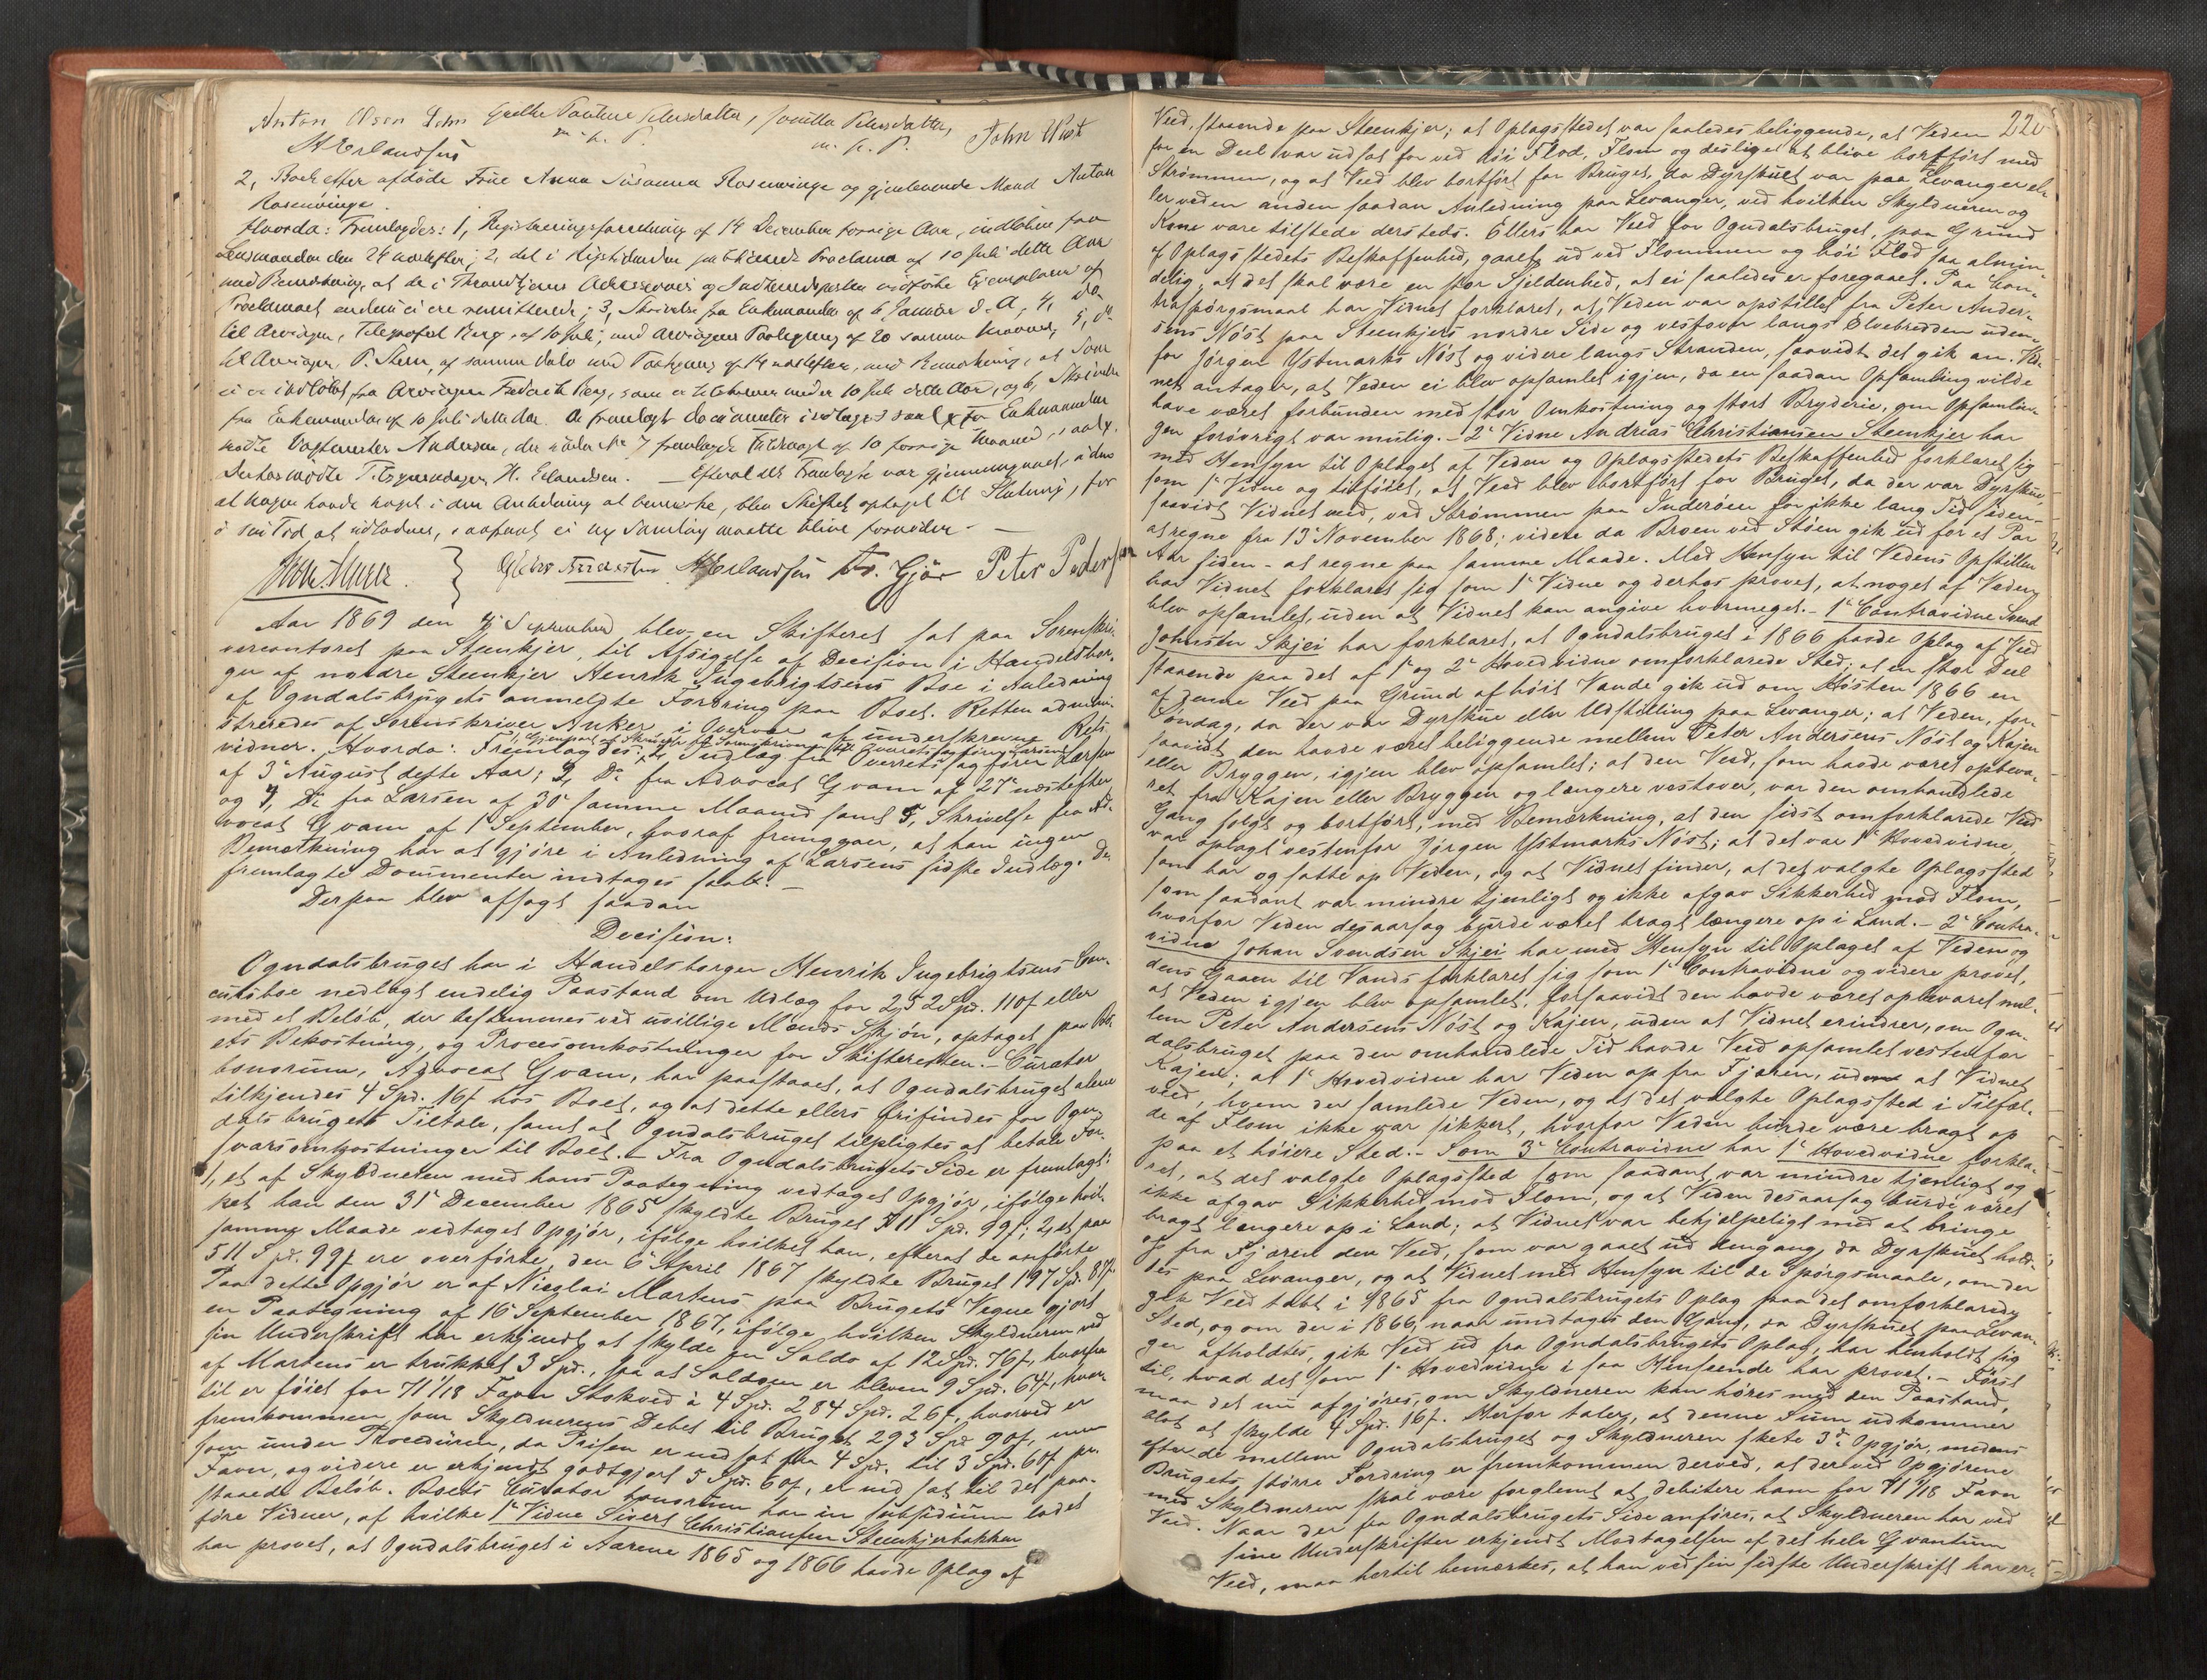 Anton Olsen Grethe Pauline Petersdatter, Petersdatter, John Wist
H Erlandsen m. f. P. m. f. P.
2, Boet efter afdøde Frue Anna Susanna Rosenvinge og gjenlevende Mand Anton
Rosenvinge.
Hvorda: Fremlagdes: 1, Registreringsforretning af 14 December forrige Aar, indkommen fra
Lensmanden den 24 næstefter; 2, det i Rigstidenden Proclama af 10 Juli dette Aar
med Bemærkning, at de i Throndhjems Adresseavis og indførte Exemplarer af
Proclamaet endnu ei ere remitterede; 3, Skrivelse fra Enkemanden af 6 Januar d. A, 4, do
til Arvingen, Berg, af 10 Juli, med Arvingens Paategning af 20 samme Maaned, 5, do
til Arvingen P. Stern, af samme Dato med Paategning af 14 næstefter, med Bemærkning, at Svar
ei er indkommet fra Arvingen Fredrik Berg, som er tilskreven under 10 Juli dette Aar, og 6, Skrivelse
fra Enkemanden af 10 Juli dette Aar. De fremlagte documenter indtages saal. For Enkemanden
mødte Andersen, der under No 7 fremlagde Fuldmagt af 10 forrige Maaned, saal.
Derhos mødte H. Erlandsen. Efterat det Fremlagte var gjennemgaaet, uden
at nogen havde noget i den Anledning at bemærke, blev Skiftet optaget til Slutning, for
i sin Tid at udloddes, saafremt ei ny Samling maatte blive fornøden. —
H Erlandsen Gjør Peter Pedersen
Aar 1869 den September blev en Skifteret sat paa Sorenskri-
vercontoret paa Steenkjer, til Afsigelse af Decision i Handelsbor-
ger af nordre Steenkjer Henrik Ingebrigtsens Boe i Anledning
af Ogndalsbrugets anmeldte Fordring paa Boet. Retten admini-
streredes af Sorenskriver Anker i Overvær af underskrevne Rets-
vidner. Hvorda: Fremlagdes: Indlæg fra Overretssagfører Larsen
af 3de August dette Aar; 3, Do fra Advocat Qvam af 27de næstefter
og 4, Do fra Larsen af 30te samme Maaned samt 5, Skrivelse fra Ad-
vocat Qvam af 1ste September, hvoraf fremgaaer, at han ingen
Bemærkning har at gjøre i Anledning af Larsens sidste Indlæg. De
fremlagte Documenter indtages saal. —
Derpaa blev afsagt saadan
Decision:
Ogndalsbruget har i Handelsborger Henrik Ingebrigtsens Con-
cursboe nedlagt endelig Paastand om Udlæg for 252 Spd. 110ſ eller
med et Beløb, der bestemmes ved uvillige Mænds Skjøn, optaget paa Bo-
ets Bekostning, og Procesomkostninger for Skifteretten. — Curator
bonorum, Advocat Qvam, har paastaaet, at Ogndalsbruget alene
tilkjendes 4 Spd. 16ſ hos Boet, og at dette ellers frifindes for Ogn-
dalsbrugets Tiltale, samt at Ogndalsbruget tilpligtes at betale For-
svarsomkostninger til Boet. — Fra Ogndalsbrugets Side er fremlagt:
1, et af Skyldneren med hans Paategning vedtaget Opgjør, ifølge hvil-
ket han den 31te December 1865 skyldte Bruget 511 Spd. 99ſ; 2, et paa
samme Maade vedtaget Opgjør, ifølge hvilket han, efterat de anførte
511 Spd. 99ſ ere overførte, den 6te April 1867 skyldte Bruget 197 Spd. 87ſ.
Paa dette Opgjør er af Nicolai Martens paa Brugets Vegne gjort
en Paategning af 16de September 1867, ifølge hvilken Skyldneren ved
sin Underskrift har erkjendt at skylde en Saldo af 12 Spd. 76ſ, hvorfra
af Martens er trukket 3 Spd., saa at Saldoen er bleven 9 Spd. 64ſ, hvor-
til er føiet for 71 1/18 Favn Stokved à 4 Spd. 284 Spd. 26ſ, hvorved er
fremkommen som Skyldnerens Debet til Bruget 293 Spd 90ſ, men
som under Proceduren, da Prisen er nedsat fra 4 Spd. til 3 Spd. 60ſ pr.
Favn, og videre er erkjendt godtgjort 5 Spd. 60ſ, er nedsat til det paa-
staaede Beløb. Boets Curator bonorum har in subsidium ladet
føre Vidner, af hvilke 1ste Vidne Sivert Christiansen Steenkjerbakken
har provet, at Ogndalsbruget i Aarene 1865 og 1866 havde Oplag af
220
Veed, staaende paa Steenkjer; at Oplagsstedet var saaledes beliggende, at Veden
for en Deel var udsat for ved høi Flod, Flom og desliget at blive bortført med
Strømmen, og at Veed blev bortført for Bruget, da Dyrskuet var paa Levanger el-
ler ved en anden saadan Anledning paa Levanger, ved hvilken Skyldneren og
Kone vare tilstede dersteds. Ellers har Veed for Ogndalsbruget, paa Grund
af Oplagsstedets Beskaffenhed, gaaet ud ved Flommen og høi Flod saa almin-
delig, at det skal være en stor Sjeldenhed, at ei saaledes er foregaaet. Paa Con-
traspørgsmaal har Vidnet forklaret, at Veden var opstillet fra Peter Ander-
sens Nøst paa Steenkjers nordre Side og vestover langs Elvebredden uden-
for Jørgen Ystmarks Nøst og videre langs Stranden, saavidt det gik an. Vid-
net antager, at Veden ei blev opsamlet igjen, da en saadan Opsamling vilde
have været forbunden med stor Omkostning og stort Bryderie, om Opsamlin-
gen forøvrigt var mulig. — 2de Vidne Andreas Christiansen Steenkjer har
med Hensyn til Oplaget af Veden og Oplagsstedets Beskaffenhed forklaret sig
som 1ste Vidne og tilføiet, at Veed blev bortført for Bruget, da der var Dyrskue,
saavidt Vidnet veed, ved Strømmen paa Inderøen for ikke lang Tid siden —
at regne fra 13de November 1868; videre da Broen ved Støen gik ud for et Par
Aar siden — at regne paa samme Maade. Med Hensyn til Vedens Opstillen
har Vidnet forklaret sig som 1ste Vidne og derhos provet, at noget af Veden
blev opsamlet, uden at Vidnet kan angive hvormeget. — 1ste Contravidne Svend
Johnsen Skjei har forklaret, at Ogndalsbruget i 1866 havde Oplag af Veed
staaende paa det af 1ste og 2det Hovedvidne omforklarede Sted; at en stor Deel
af denne Veed paa Grund af høit Vande gik ud om Høsten 1866 en
Søndag, da der var Dyrskue eller Udstilling paa Levanger; at Veden, for-
saavidt den havde været beliggende mellem Peter Andersens Nøst og Kajen
eller Bryggen, igjen blev opsamlet; at den Veed, som havde været opbeva-
ret fra Kajen eller Bryggen og længere vestover, var den omhandlede
Gang solgt og bortført, med Bemærkning, at den sidst omforklarede Veed
var oplagt vestenfor Jørgen Ystmarks Nøst; at det var 1ste Hovedvidne,
som bar og satte op Veden, og at Vidnet finder, at det valgte Oplagssted
som saadant var mindre tjenligt og ikke afgav Sikkerhed mod Flom,
hvorfor Veden desaarsag burde været bragt længere op i Land. — 2det Contra-
vidne Johan Svendsen Skjei har med Hensyn til Oplaget af Veden og
dens Gaaen til Vands forklaret sig som 1ste Contravidne og videre provet,
at Veden igjen blev opsamlet, forsaavidt den havde været opbevaret mel-
lem Peter Andersens Nøst og Kajen, uden at Vidnet erindrer, om Ogn-
dalsbruget paa den omhandlede Tid havde Veed opsamlet vestenfor
Kajen; at 1ste Hovedvidne bar Veden op fra Fjæren, uden at Vidnet
veed, hvem der samlede Veden, og at det valgte Oplagssted i Tilfæl-
de af Flom ikke var sikkert, hvorfor Veden burde være bragt op
paa et høiere Sted. — Som 3de Contravidne har 1ste Hovedvidne forkla-
ret, at det valgte Oplagssted som saadant var mindre tjenligt og
ikke afgav Sikkerhed mod Flom, og at Veden desaarsag burde været
bragt længere op i Land; at Vidnet var behjælpeligt med at bringe
op fra Fjæren den Veed, som var gaaet ud dengang, da Dyrskuet hold-
tes paa Levanger, og at Vidnet med Hensyn til de Spørgsmaale, om der
gik Veed tabt i 1865 fra Ogndalsbrugets Oplag paa det omforklarede
Sted, og om der i 1866, naar undtages den Gang, da Dyrskuet paa Levan-
ger afholdtes, gik Veed ud fra Ogndalsbrugets Oplag, har henholdt sig
til, hvad det som 1ste Hovedvidne i saa Henseende har provet. — Først
maa det nu afgjøres, om Skyldneren kan høres med den Paastand,
blot at skylde 4 Spd. 16ſ. Herfor taler, at denne Sum udkommer
efter de mellem Ogndalsbruget og Skyldneren skete 3de Opgjør, medens
Brugets større Fordring er fremkommen derved, at der ved Opgjørene
med Skyldneren skal være forglemt at debitere ham for 71 1/18 Favn
Veed. Naar der fra Ogndalsbrugets Side anføres, at Skyldneren har ved
sine Underskrifter erkjendt Modtagelsen af det hele Qvantum
Veed, maa hertil bemærkes, at han ved sin sidste Underskrift har er-